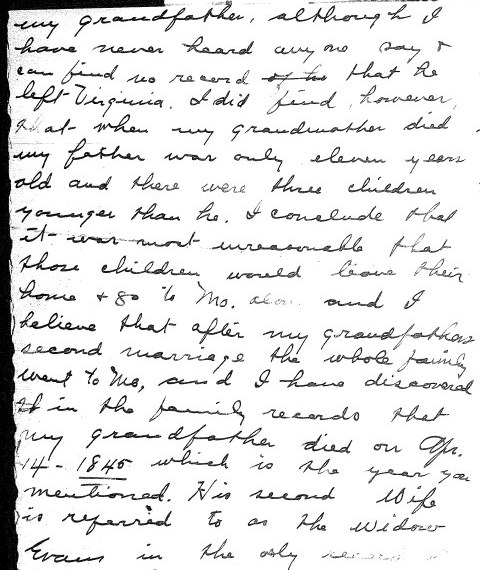 my grandfather, although I
have never heard anyone say &
can find no record of his that he
left Virginia. I did find, however,
that when my grandmother died
my father was only eleven years
old and there were three children
younger than he. I conclude that
it was most unreasonable that
those children would leave their
home & go to Mo. alone and I
believe that after my grandfathers
second marriage the whole family
went to Mo, and I have discovered
in the family records that
my grandfather died on Apr.
14 - 1845 which is the year you
mentioned. His second Wife
is referred to as the Widow
Evans in the only